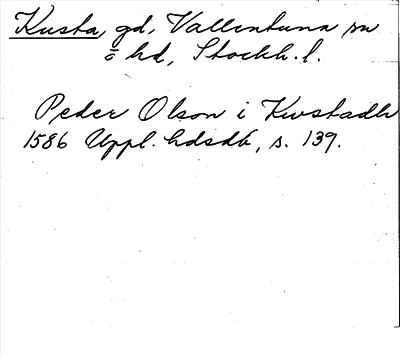 Kusta, gd, Vallentuna sn
o hd, Stockh. l.
Peder Olson i Kwstadh
1586 Uppl. hdsdb, s. 139.